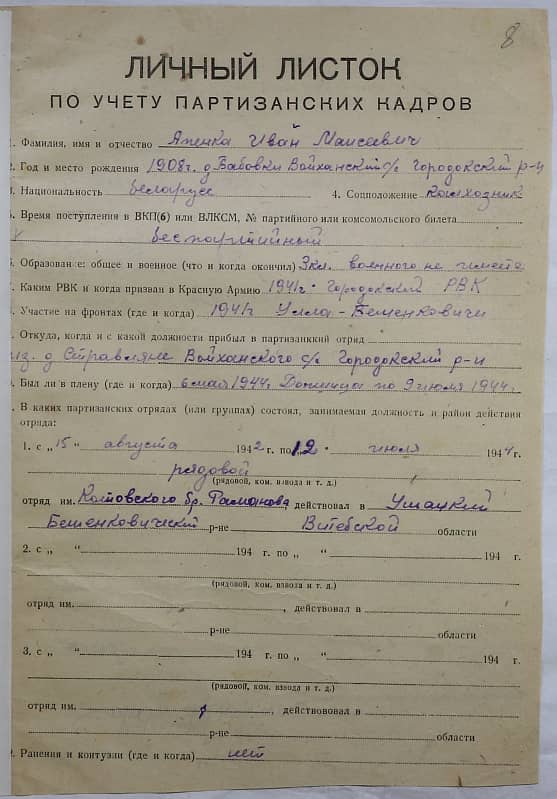 8
ЛИЧНЫЙ ЛИСТОК
ПО УЧЕТУ ПАРТИЗАНСКИХ КАДРОВ
1. Фамилия, имя и отчество Япенка Иван Маисеевич
2. Год и место рождения 1908 г. д. Бабовки Войханский с/с Городокский р-н
3. Национальность белорусс 4. Соцположение колхозник
5. Время поступления в ВКП(б) или ВЛКСМ, № партийного или комсомольского билета
беспартийный
6. Образование: общее и военное (что и когда окончил) 3 кл. военного не имеет
7. Каким РВК и когда призван в Красную Армию 1941 г. Городокский РВК
8. Участие на фронтах (где и когда) 1941 Улла-Бешенковичи
Откуда, когда и с какой должности прибыл в партизанккий отряд
из д. Стравляне Войханского с/с Городокский р-н
Был ли в плену (где и когда) 6 мая 1944. по 9 июля 1944.
В каких партизанских отрядах (или группах) состоял, занимаемая должность и район действия
отряда:
1. с „ 15 “ августа 1942 г. по 12 июля 1944 г.
рядовой
(рядовой, ком. взвода и т. д.)
отряд им. Котовского бр. Романова действовал в Ушацкий
Бешенковический р-не Витебской области
2. с „ “ 194 г. по „ “ 194 г.
(рядовой, ком. взвода и т. д.)
отряд им. , действовал в
р-не области
3. с „ “ 194 г. по „ “ 194 г.
(рядовой, ком. взвода и т. д.)
отряд им. , действововал в
р-не области
Ранения и контузии (где и когда) нет